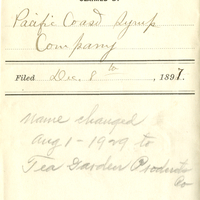 Pacific Coast Syrup
Company
Filed Dec. 8th, 1897.
name changed
Aug 1-1929 to
Tea Garden Products
Co